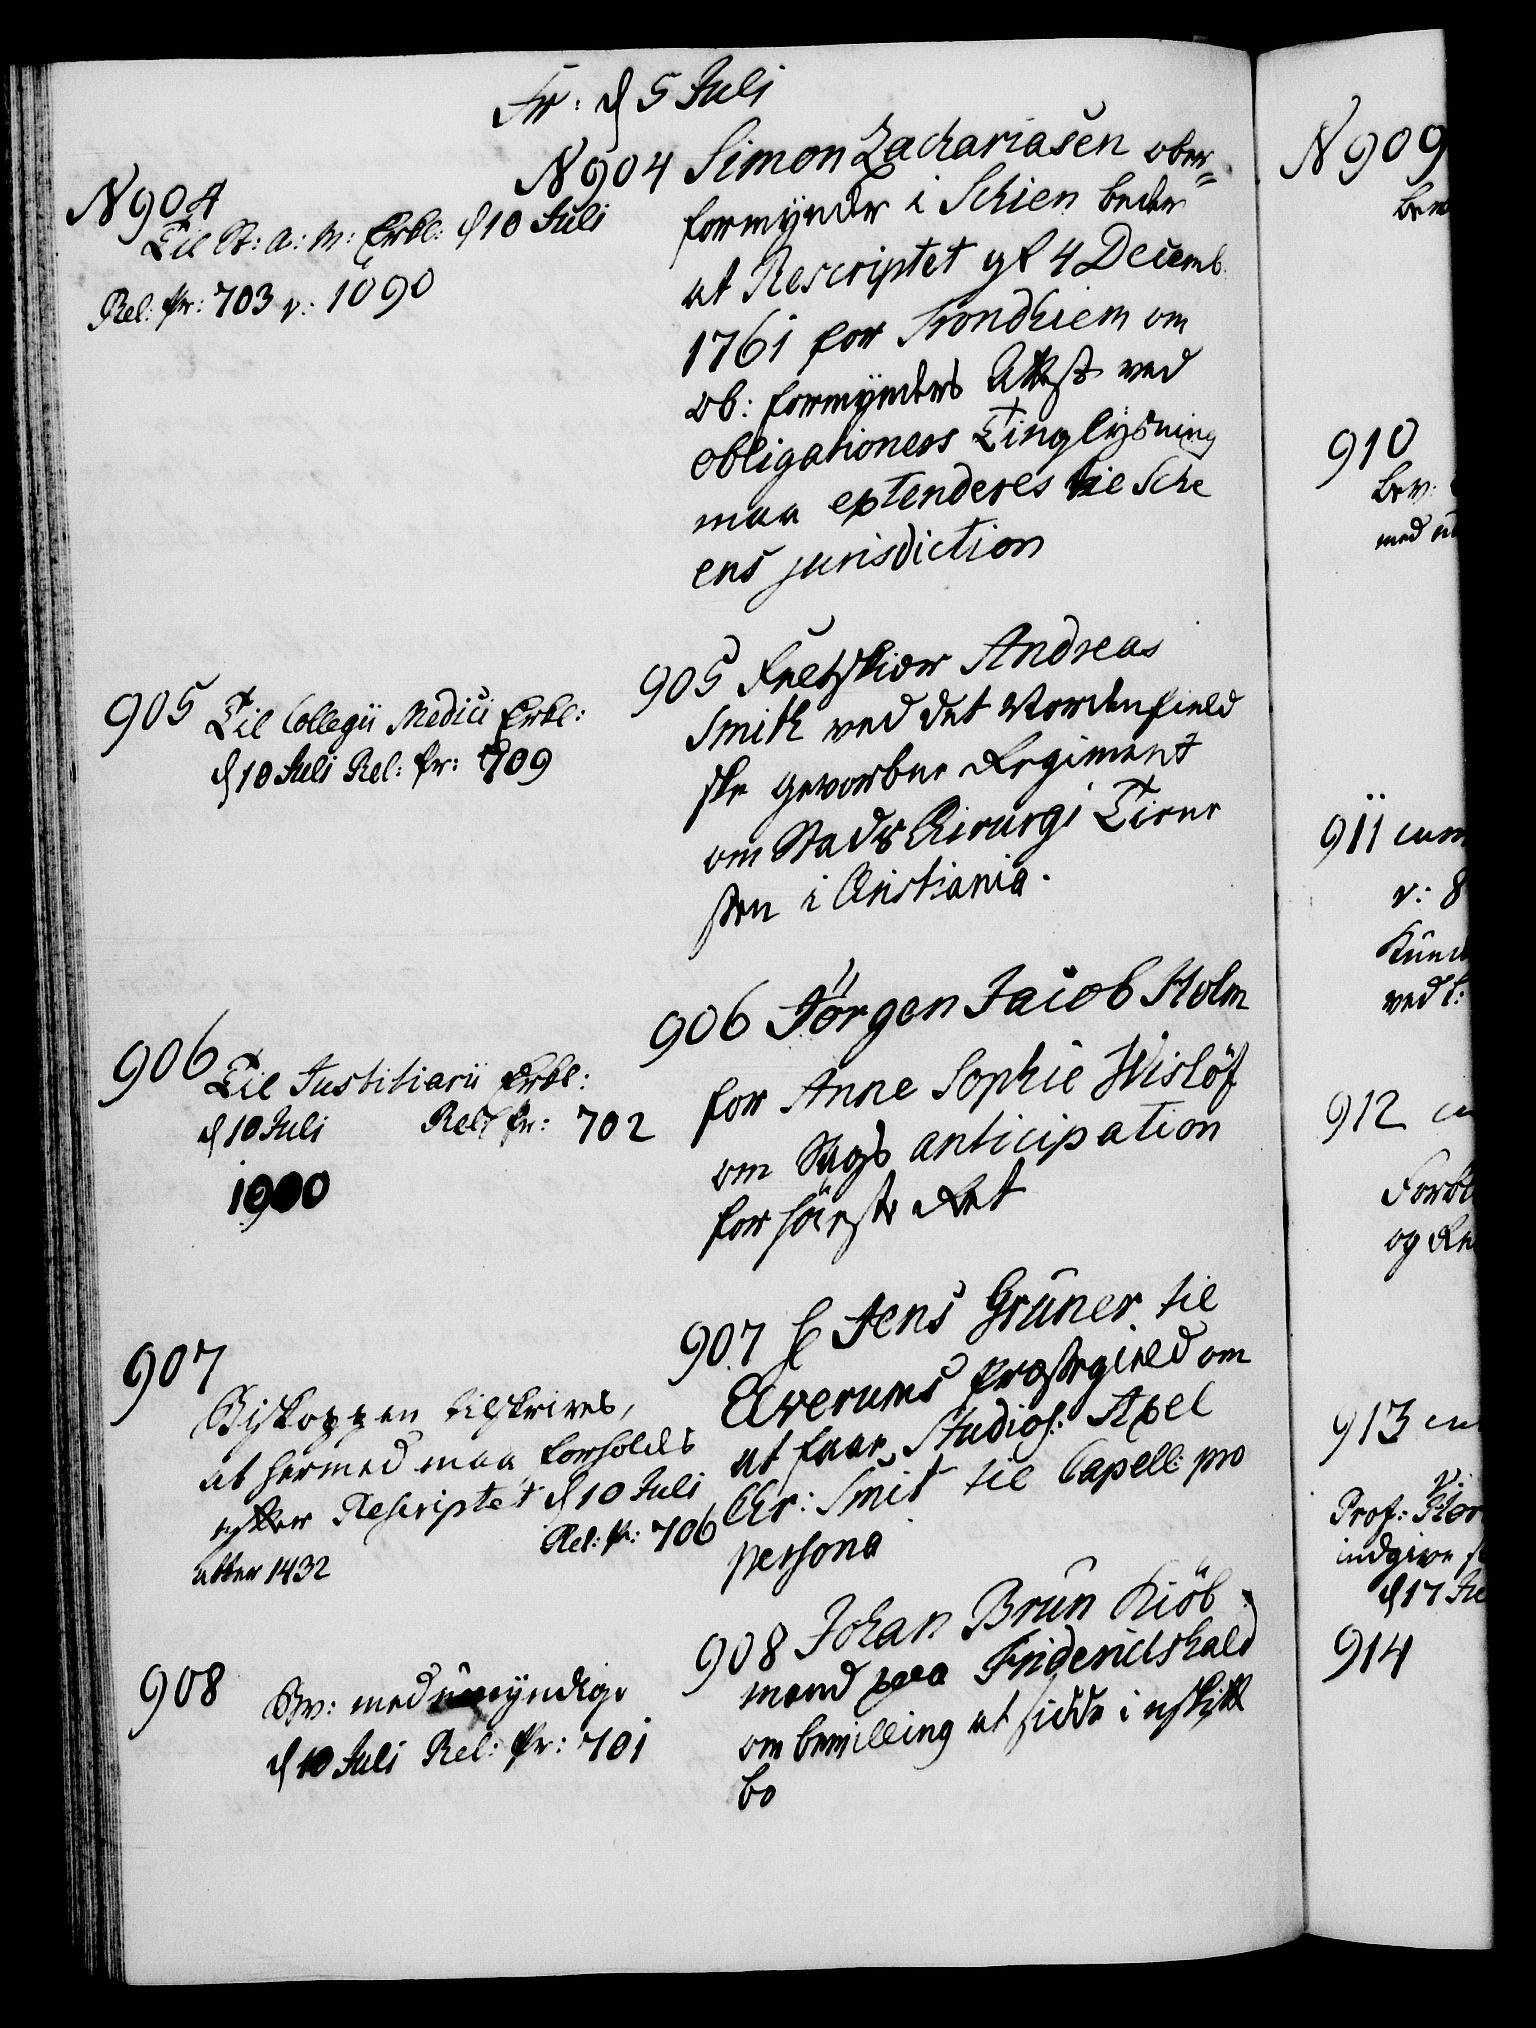 Fr: d 5 Juli
N 904
Til St: A: M: Erkl: d 10 Juli
Rel: Pr: 703 v: 1090
N 904 Simon Zachariasen ober=
formynder i Schien beder
at Rescriptet af 4 Decemb.
1761 for Trondhiem om
Ob: formynders Attest ved
obligationers Tinglysning
maa extenderes til Sche
ens jurisdiction
905 Til Collegii Medici Erkl:
d 10 Juli Rel: Pr: 709
905 Feltskiær Andreas
Smith ved det Nordenfield
ske gevorbne Regiment
om Stads Chirurgi Tiene
sten i Christiania.
906
Til Justitiarii Erkl:
d 10 Juli Rel: Pr: 702
1900
906 Jörgen Jacob Holm
for Anne Sophie Wislöf
om Sags anticipation
for höieste Ret
907
Biskoppen tilskrives,
at hermed maa forholdes
efter Rescriptet d 10 Juli
Rel: Pr: 706
atter 1432
907 H Jens Grüner til
Elverums Præstegield om
at faae Studios: Axel
Chr: Smit til Capell: pro
persona
908
Bev: med umyndige
d 10 Juli Rel: Pr: 701
908 Johan Brun Kiöb
mand paa Friderichshald
om bevilling at sidde i uskift
bo
N 909
910
Bev:
911 cum
v: 8
912
913
Prof:
indgive
d 17
914